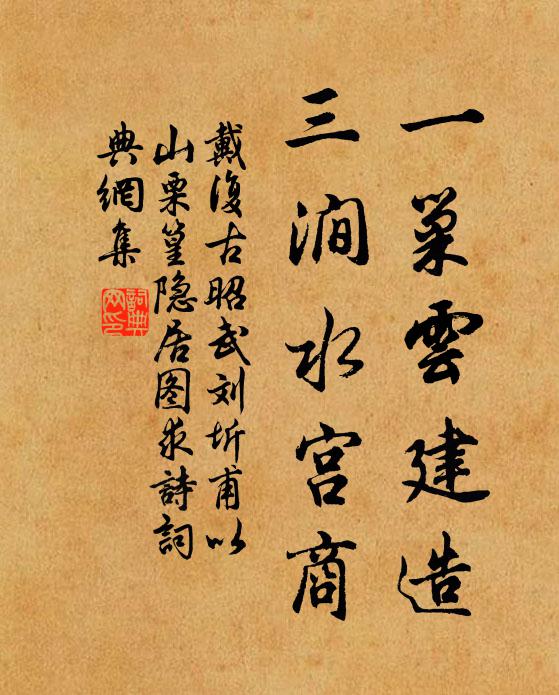 一巢雲建造
三澗水宫商
戴復古昭武刘圻甫以
山栗篁隐居图求詩詞
典網集
詞典
网印